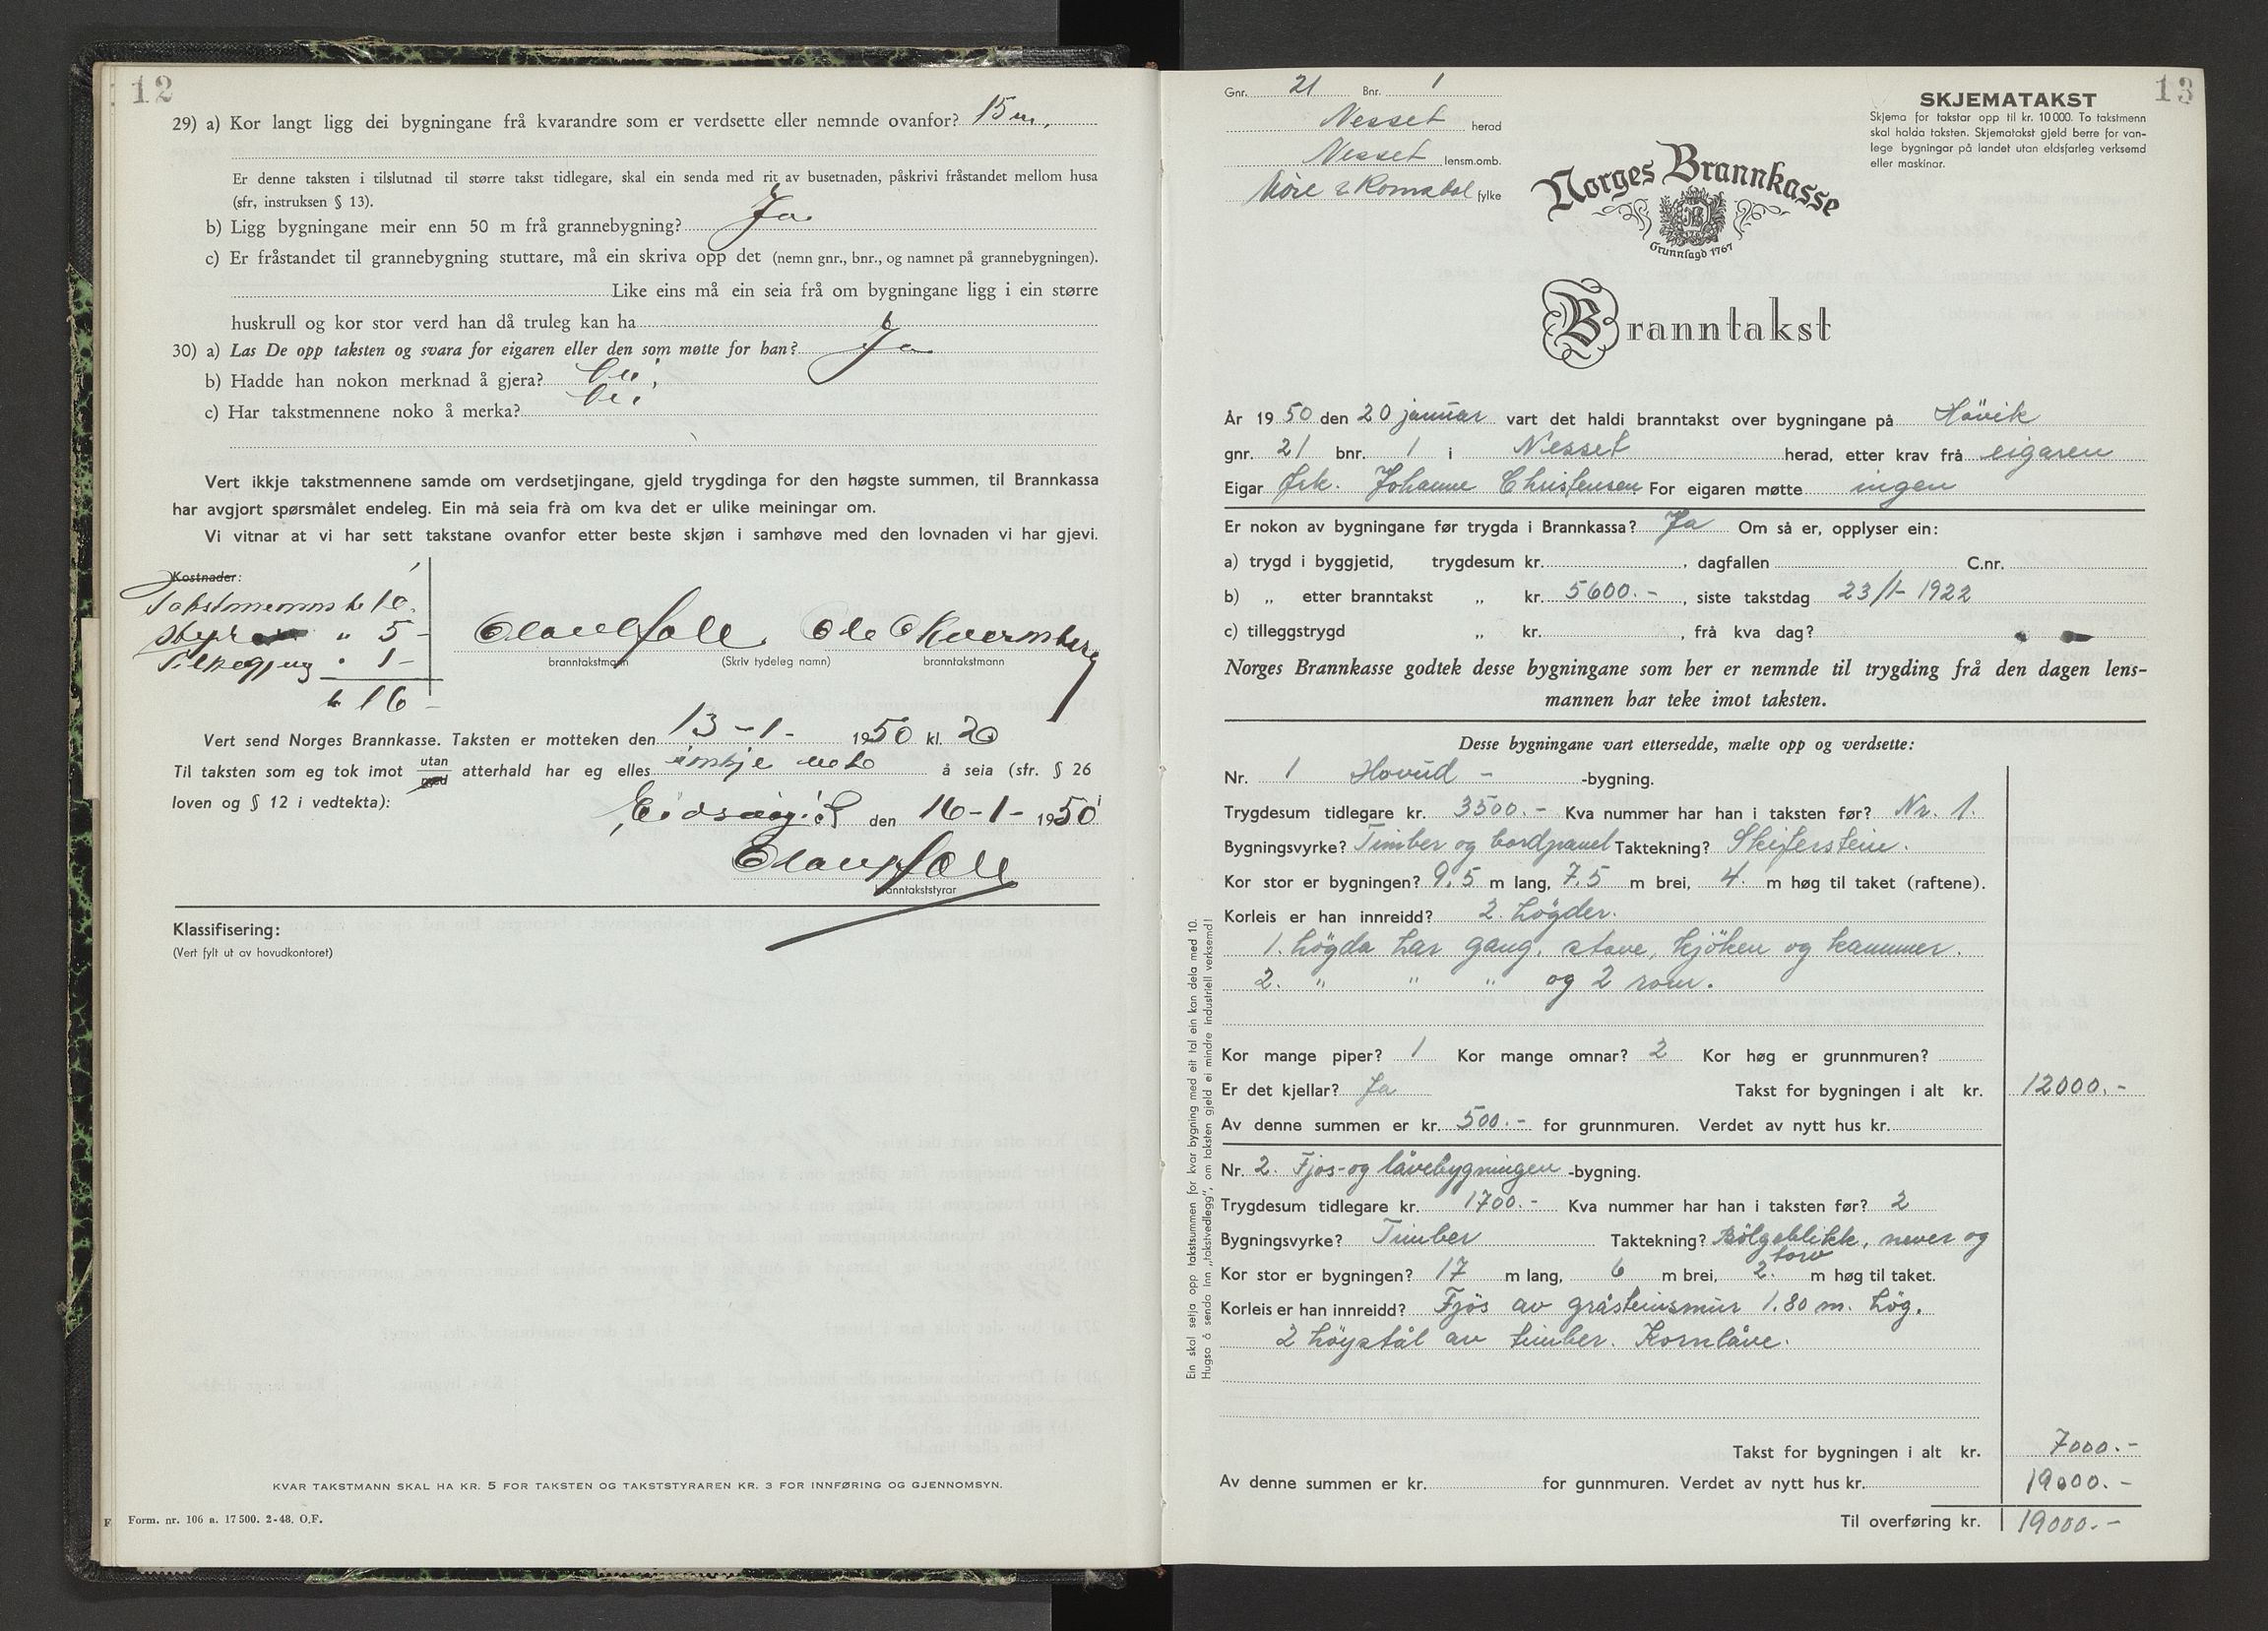 12
29) a) Kor langt ligg dei bygningane frå kvarandre som er verdsette eller nemnde ovanfor? 15 m.
Er denne taksten i tilslutnad til større takst tidlegare, skal ein senda med rit av busetnaden, påskrivi fråstandet mellom husa
(sfr, instruksen § 13).
b) Ligg bygningane meir enn 50 m frå grannebygning? Ja.
c) Er fråstandet til grannebygning stuttare, må ein skriva opp det (nemn gnr., bnr., og namnet på grannebygningen).
Like eins må ein seia frå om bygningane ligg i ein større
huskrull og kor stor verd han då truleg kan ha
30) a) Las De opp taksten og svara for eigaren eller den som møtte for han? Ja
b) Hadde han nokon merknad å gjera?
c) Har takstmennene noko å merka?
Vert ikkje takstmennene samde om verdsetjingane, gjeld trygdinga for den høgste summen, til Brannkassa
har avgjort spørsmålet endeleg. Ein må seia frà om kva det er ulike meiningar om.
Vi vitnar at vi har sett takstane ovanfor etter beste skjøn i samhøve med den lovnaden vi har gjevi.
Kostnader:
Takstmenns kr 10.
Styrar " 5 -
" 1 -
kr 16 -
Olav Ole O Kvernberg
branntakstmann (Skriv tydeleg namn) branntakstmann
Vert send Norges Brannkasse. Taksten er motteken den 13 - 1 - 1950 kl. 20
Til taksten som eg tok imot utan/med atterhald har eg elles inkje å seia (sfr. § 26
loven og § 12 i vedtekta):
Eidsvåg den 16 - 1 - 1950
Olav
branntakststyrar
Klassifisering:
(Vert fylt ut av hovudkontoret)
KVAR TAKSTMANN SKAL HA KR. 5 FOR TAKSTEN OG TAKSTSTYRAREN KR. 3 FOR INNFØRING OG GJENNOMSYN.
F Form. nr. 106 a. 17 500. 2-48. O.F.
13
Gnr. 21 Bnr. 1
Nesset herad
Nesset lensm.omb.
Møre & Romsdal fylke
SKJEMATAKST
Skjema for takstar opp til kr. 10 000. To takstmenn
skal halda taksten. Skjematakst gjeld berre for van-
lege bygningar på landet utan eldsfarleg verksemd
eller maskinar.
Norges Brannkasse
Grunnlagd 1767
Branntakst
År 1950 den 20 januar vart det haldi branntakst over bygningane på Hävik
gnr. 21 bnr. 1 i Nesset herad, etter krav frå eigaren
Eigar Frk. Johanne Christensen For eigaren møtte ingen
Er nokon av bygningane før trygda i Brannkassa? Ja Om så er, opplyser ein:
a) trygd i byggjetid, trygdesum kr. , dagfallen C.nr.
b) „ etter branntakst „ kr. 5600.- , siste takstdag 23/1- 1922
c) tilleggstrygd „ kr. , frå kva dag?
Norges Brannkasse godtek desse bygningane som her er nemnde til trygding frå den dagen lens-
mannen har teke imot taksten.
Desse bygningane vart ettersedde, mælte opp og verdsette:
Nr. 1 Hovud - -bygning.
Trygdesum tidlegare kr. 3500.- Kva nummer har han i taksten før? Nr. 1.
Bygningsvyrke? Timber og bordpanel Taktekning? Skiferstein.
Kor stor er bygningen? 9.5 m lang, 7.5 m brei, 4. m høg til taket (raftene).
Korleis er han innreidd? 2. högder.
1. högda har gang, stove, kjöken og kammer.
2. " " " og 2 rom.
Kor mange piper? 1 Kor mange omnar? 2 Kor høg er grunnmuren?
Er det kjellar? Ja Takst for bygningen i alt kr. 12000.-
Av denne summen er kr. 500.- for grunnmuren. Verdet av nytt hus kr.
Nr. 2. Fjos- og låvebygningen -bygning.
Trygdesum tidlegare kr. 1700.- Kva nummer har han i taksten før? 2
Bygningsvyrke? Timber Taktekning? Bölgeblikk, never og
torv
Kor stor er bygningen? 17 m lang, 6 m brei, 2. m høg til taket.
Korleis er han innreidd? Fjös av gråsteinsmur 1.80 m. hög.
2 höystål av timber. Kornlåve.
Takst for bygningen i alt kr. 7000.-
Av denne summen er kr. for gunnmuren. Verdet av nytt hus kr. 19000.-
Til overføring kr. 19000.-
Ein skal seija opp takstsummen for kvar bygning med eit tal ein kan dela med 10.
Hugsa å senda inn „takstvedlegg", om taksten gjeld ei mindre industriell verksemd!